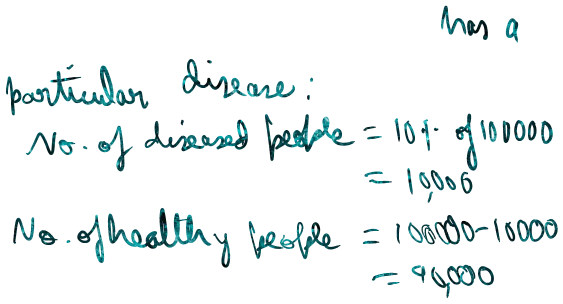 has a
particular disease:
No. of diseased people = 10% of 100000
= 10,000
No. of healthy people = 100000-10000
= 90,000